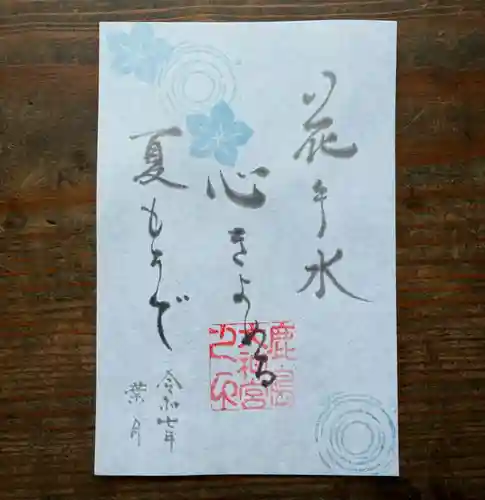 花手水
心きよめる
夏もうで
令和七年
葉月
鹿島
大神宮
之印